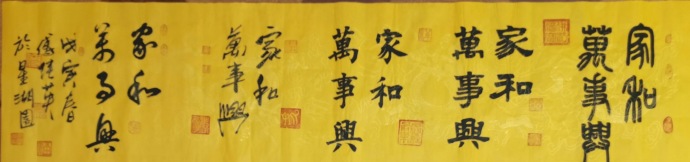 家和
萬事興
家和
萬事興
家和
萬事興
家和
萬事興
家和
萬事興
戊寅春
於星湖園